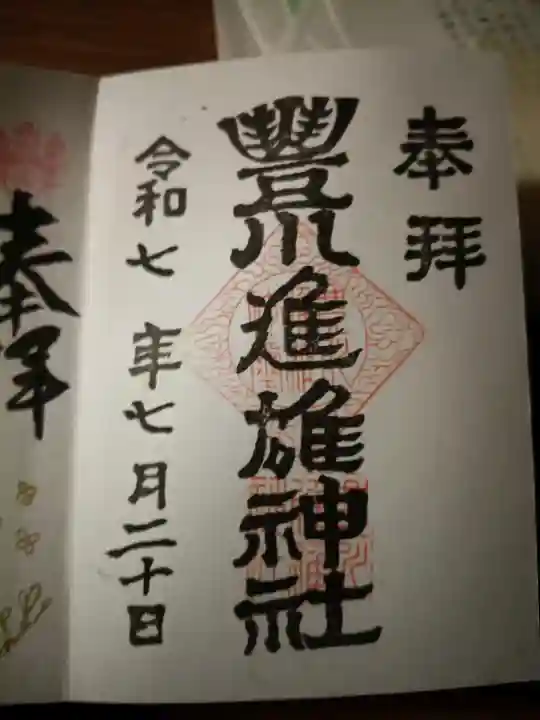 奉拝
豐川進雄神社
令和七年七月二十日
奉拝